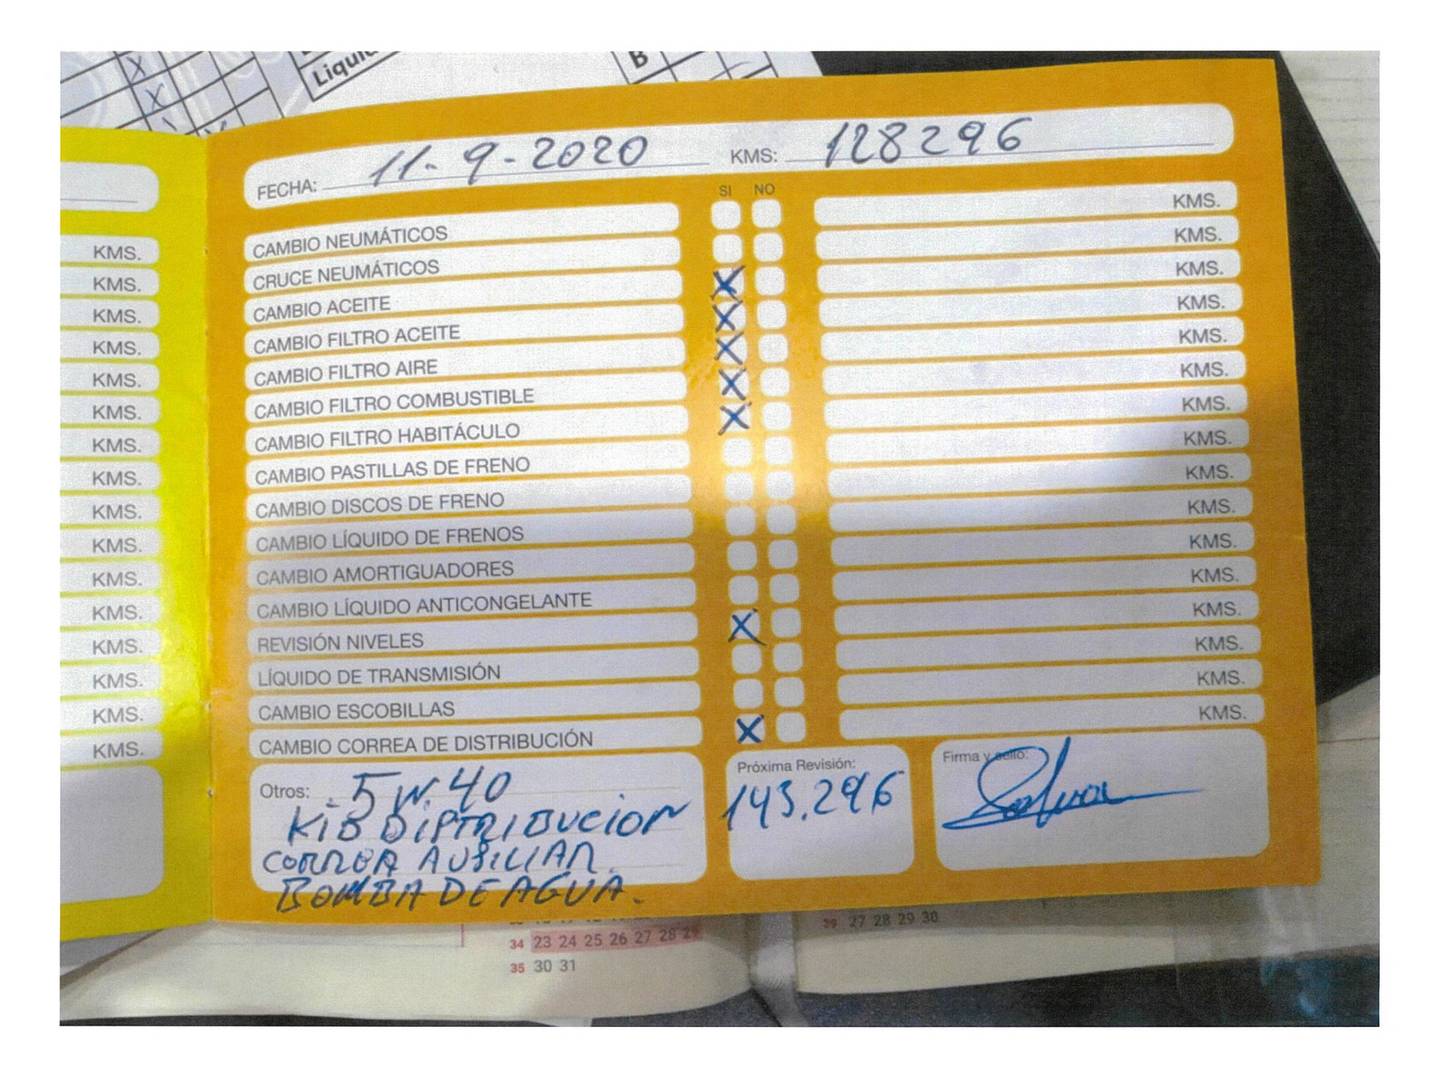 Liqui
B
FECHA: 11-9-2020 KMS: 128296
SI NO
CAMBIO NEUMÁTICOS KMS.
CRUCE NEUMÁTICOS KMS.
CAMBIO ACEITE X KMS.
CAMBIO FILTRO ACEITE X KMS.
CAMBIO FILTRO AIRE X KMS.
CAMBIO FILTRO COMBUSTIBLE X KMS.
CAMBIO FILTRO HABITÁCULO X KMS.
CAMBIO PASTILLAS DE FRENO KMS.
CAMBIO DISCOS DE FRENO KMS.
CAMBIO LÍQUIDO DE FRENOS KMS.
CAMBIO AMORTIGUADORES KMS.
CAMBIO LÍQUIDO ANTICONGELANTE KMS.
REVISIÓN NIVELES X KMS.
LÍQUIDO DE TRANSMISIÓN KMS.
CAMBIO ESCOBILLAS KMS.
CAMBIO CORREA DE DISTRIBUCIÓN X KMS.
Otros: 5W40
KIB DISTRIBUCION
CORREA AUSILIAR
BOMBA DE AGUA.
Próxima Revisión:
143.296
Firma y sello:
KMS.
KMS.
KMS.
KMS.
KMS.
KMS.
KMS.
KMS.
KMS.
KMS.
KMS.
KMS.
KMS.
KMS.
KMS.
KMS.
34 23 24 25 26 27 28 29
35 30 31
39 27 28 29 30